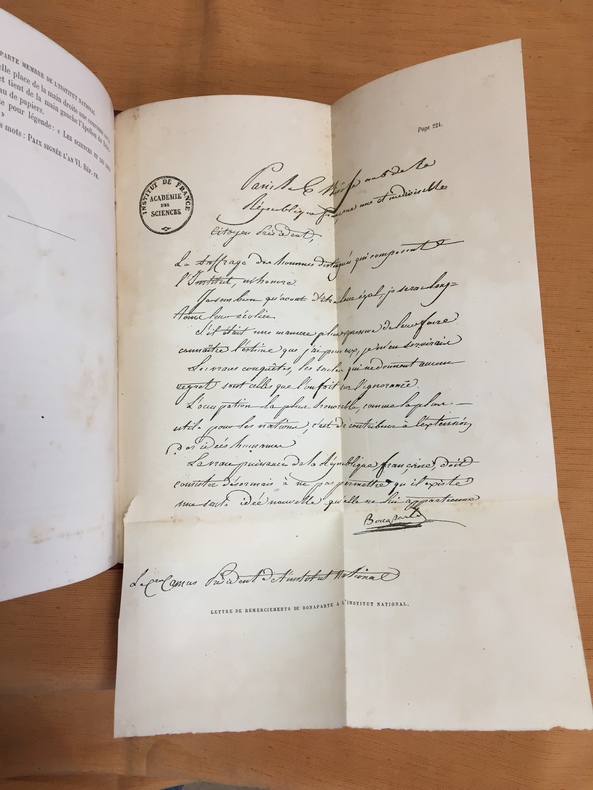 PARTE MEMBRE DE L'INSTITUT NATIONAL
elle place de la main droite une couronne
et tient de la main gauche l'épellon
au de papiers.
pour légende : « LES SCIENCES ET LES
mots : PAIX SIGNÉE L'AN VI. RÉP. FR.
Page 221.
INSTITUT DE FRANCE
ACADÉMIE
DES
SCIENCES
Paris le 6 Nivôse an 6 de la
République française une et indivisible
Citoyen Président,
Le suffrage des hommes distingués qui composent
l'Institut, m'honore.
Je sens bien qu'avant d'être leur égal, je serai long-
tems leur écolier.
S'il était une manière plus expressive de leur faire
connaître l'estime que j'ai pour eux, je m'en servirais
Les vraies conquêtes, les seules qui ne donnent aucun
regret sont celles que l'on fait sur l'ignorance.
L'occupation la plus honorable, comme la plus
utile pour les nations, c'est de contribuer à l'extension
des idées humaines
La vraie puissance de la République française doit
consister désormais à ne pas permettre qu'il existe
une seule idée nouvelle qu'elle ne lui appartienne
Bonaparte
Le Cen Camus Président de l'institut National
LETTRE DE REMERCIEMENTS DE BONAPARTE A L'INSTITUT NATIONAL.